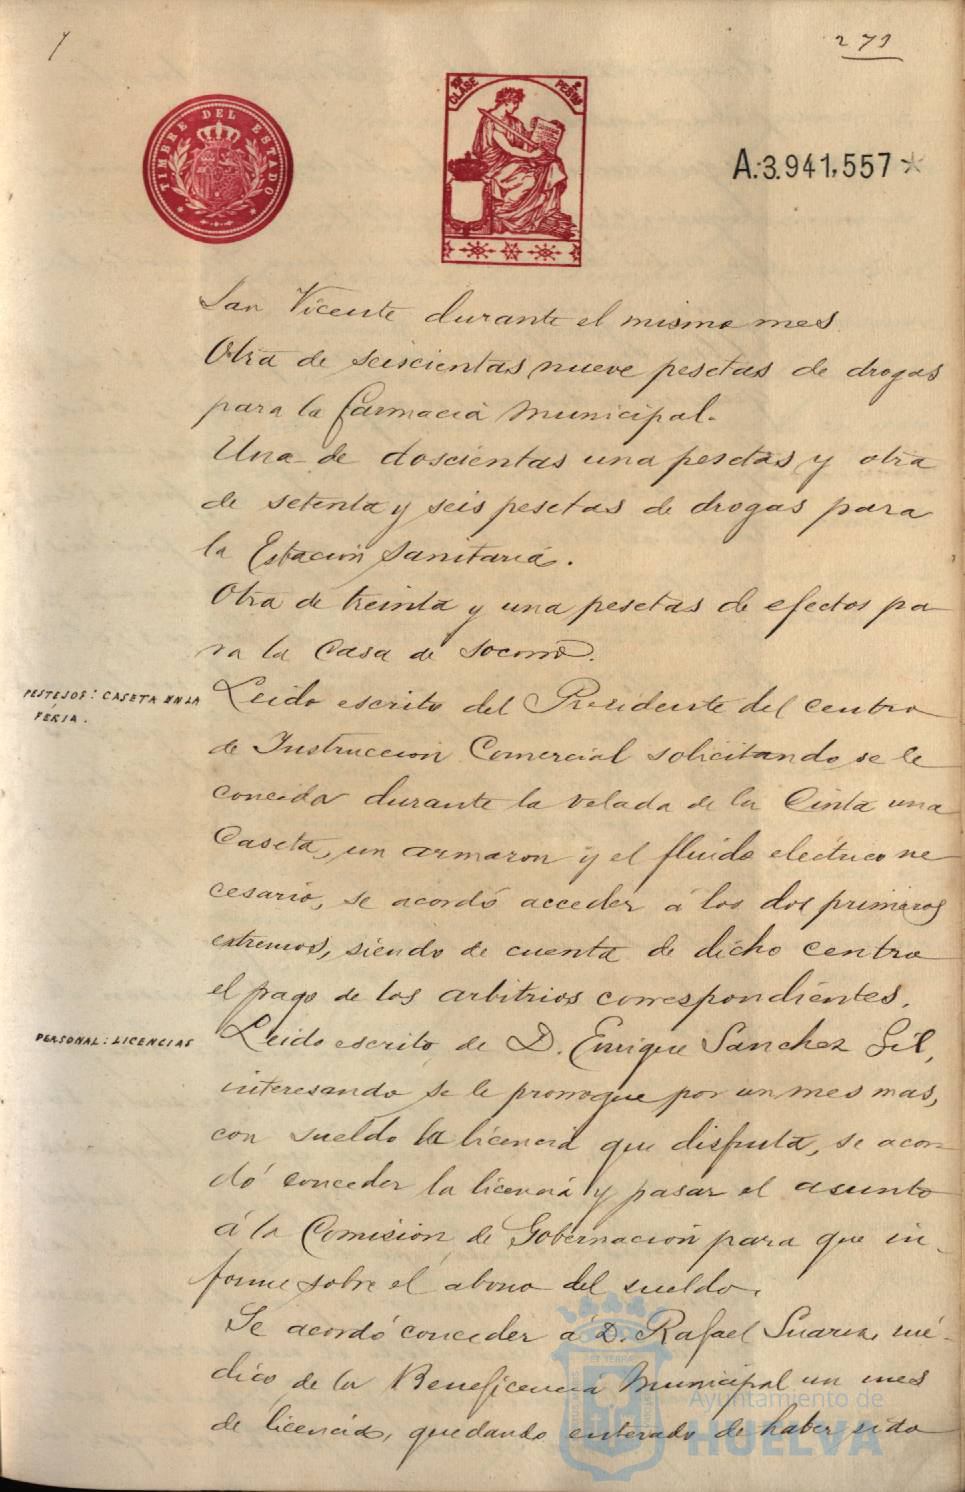 271
TIMBRE DEL ESTADO
CLASE
PESETAS
A.3.941,557
San Vicente durante el mismo mes
Otra de seiscientas nueve pesetas de drogas
para la farmacia Municipal.
Una de doscientas una pesetas y otra
de setenta y seis pesetas de drogas para
la Estacion Sanitaria.
Otra de treinta y una pesetas de efectos pa-
ra la Casa de Socorro.
FESTEJOS: CASETA EN LA
FERIA.
Leido escrito del Presidente del centro
de Instruccion Comercial solicitando se le
conceda durante la velada de la Cinta una
Caseta, un armaron y el fluido electrico ne
cesario, se acordó acceder á los dos primeros
extremos, siendo de cuenta de dicho centro
el pago de los arbitrios correspondientes.
PERSONAL: LICENCIAS
Leido escrito de D. Enrique Sanchez Gil,
interesando se le prorrogue por un mes mas,
con sueldo la licencia que disfruta, se acor-
dó conceder la licencia y pasar el asunto
á la Comision de Gobernacion para que in-
forme sobre el abono del sueldo.
Se acordó conceder á D. Rafael Suarez, mé-
dico de la Beneficencia Municipal un mes
de licencia, quedando enterado de haber sido
Ayuntamiento de
HUELVA